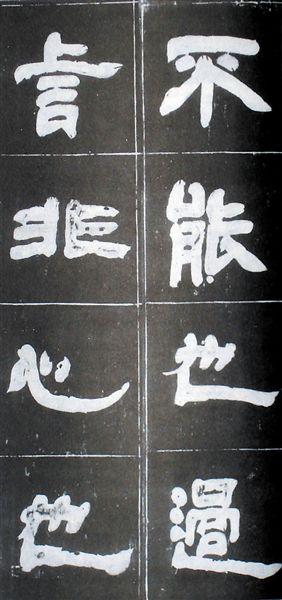 不能也過
言非心也